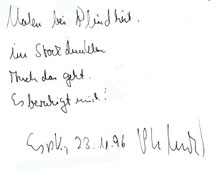 Malen bei Blindheit.
im Stockdunklen
Auch das geht.
Es beruhigt mich!
23.11.96